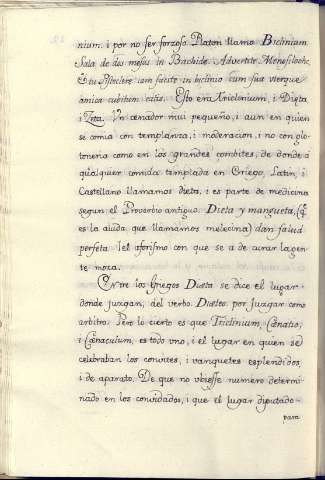 nium. i por no ser forzoso. Platon llamo Biclinium
Sala de dos mesas in Bachide. Advertite Mensilochs,
& tu Pistoclere iam facite in biclinio cum sua vterque
amica cubitum eatis. Esto era Triclinium, i Dieta
i Zeta. Vn cenador mui pequeño, i aun en quien
se comia con templanza, i moderacion, i no con glo-
toneria como en los grandes combites, de donde a
qualquier comida templada en Griego, Latin, i
Castellano llamamos dieta, i es parte de medicina
segun el Proverbio antiguo. Dieta y mangueta, (q
es la aiuda que llamamos melecina) dan salud
perfeta. i el aforismo con que se a de curar la gen-
te moza.
Entre los Griegos Diaeta se dice el lugar
donde juzgan, del verbo. Diaeto. por juzgar como
arbitro. Pero lo cierto es que Triclinium, Cænatio,
i Cænaculum, es todo vno, i el lugar en quien se
celebraban los convites, i vanquetes esplendidos,
i de aparato. De que no vbiesse numero determi-
nado en los convidados, i que el lugar diputado
para